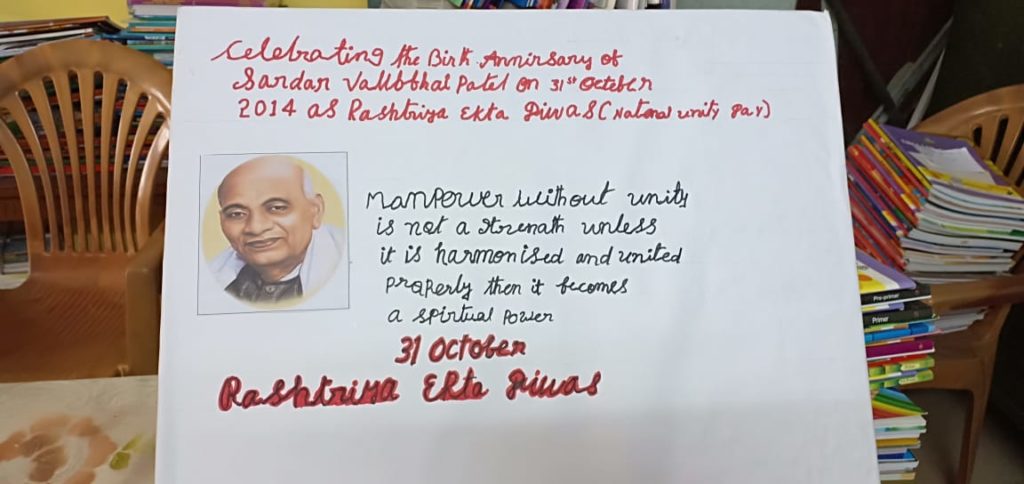 Celebrating the Birth Annirsary of
Sardar Vallbbhai Patel on 31st October
2014 as Rashtriya Ekta Diwas (National unity Day)
Manpower without unity
is not a strenath unless
it is harmonised and united
properly then it becomes
a spirtual power
31 October
Rashtriya Ekta Diwas
Pre-primer
Primer